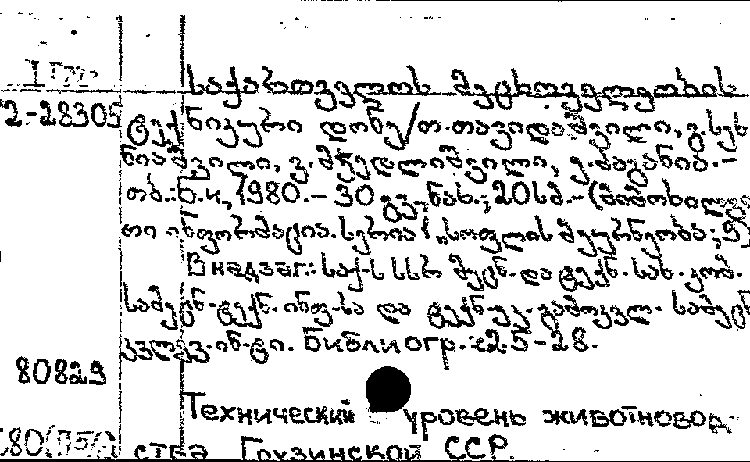 საქართველოს მეცხოველეობის
2-28305 ტექნიკური დონე/თ.თავიდაშვილი, გ.სეხ
ნიაშვილი, ვ.მჭედლიშვილი,
თბ.: Б.и., 1980.- 30 გვ. ნახ.; 20სმ.-(მიმოხილვ
თი ინფორმაცია. სერია სოფლის მეურნეობა;
В надзаг.: საქ-ს სსრ მეცნ. და ტექნ. სახ. კომ.
სამეცნ-ტექნ. ინფ-სა და ტექნ-ეკ. გამოკვლ. სამეცნ
კვლევ. ин-ტი. Библиогр.: с.25-28.
80829
Технический уровень животновод-
ства Грузинской ССР.